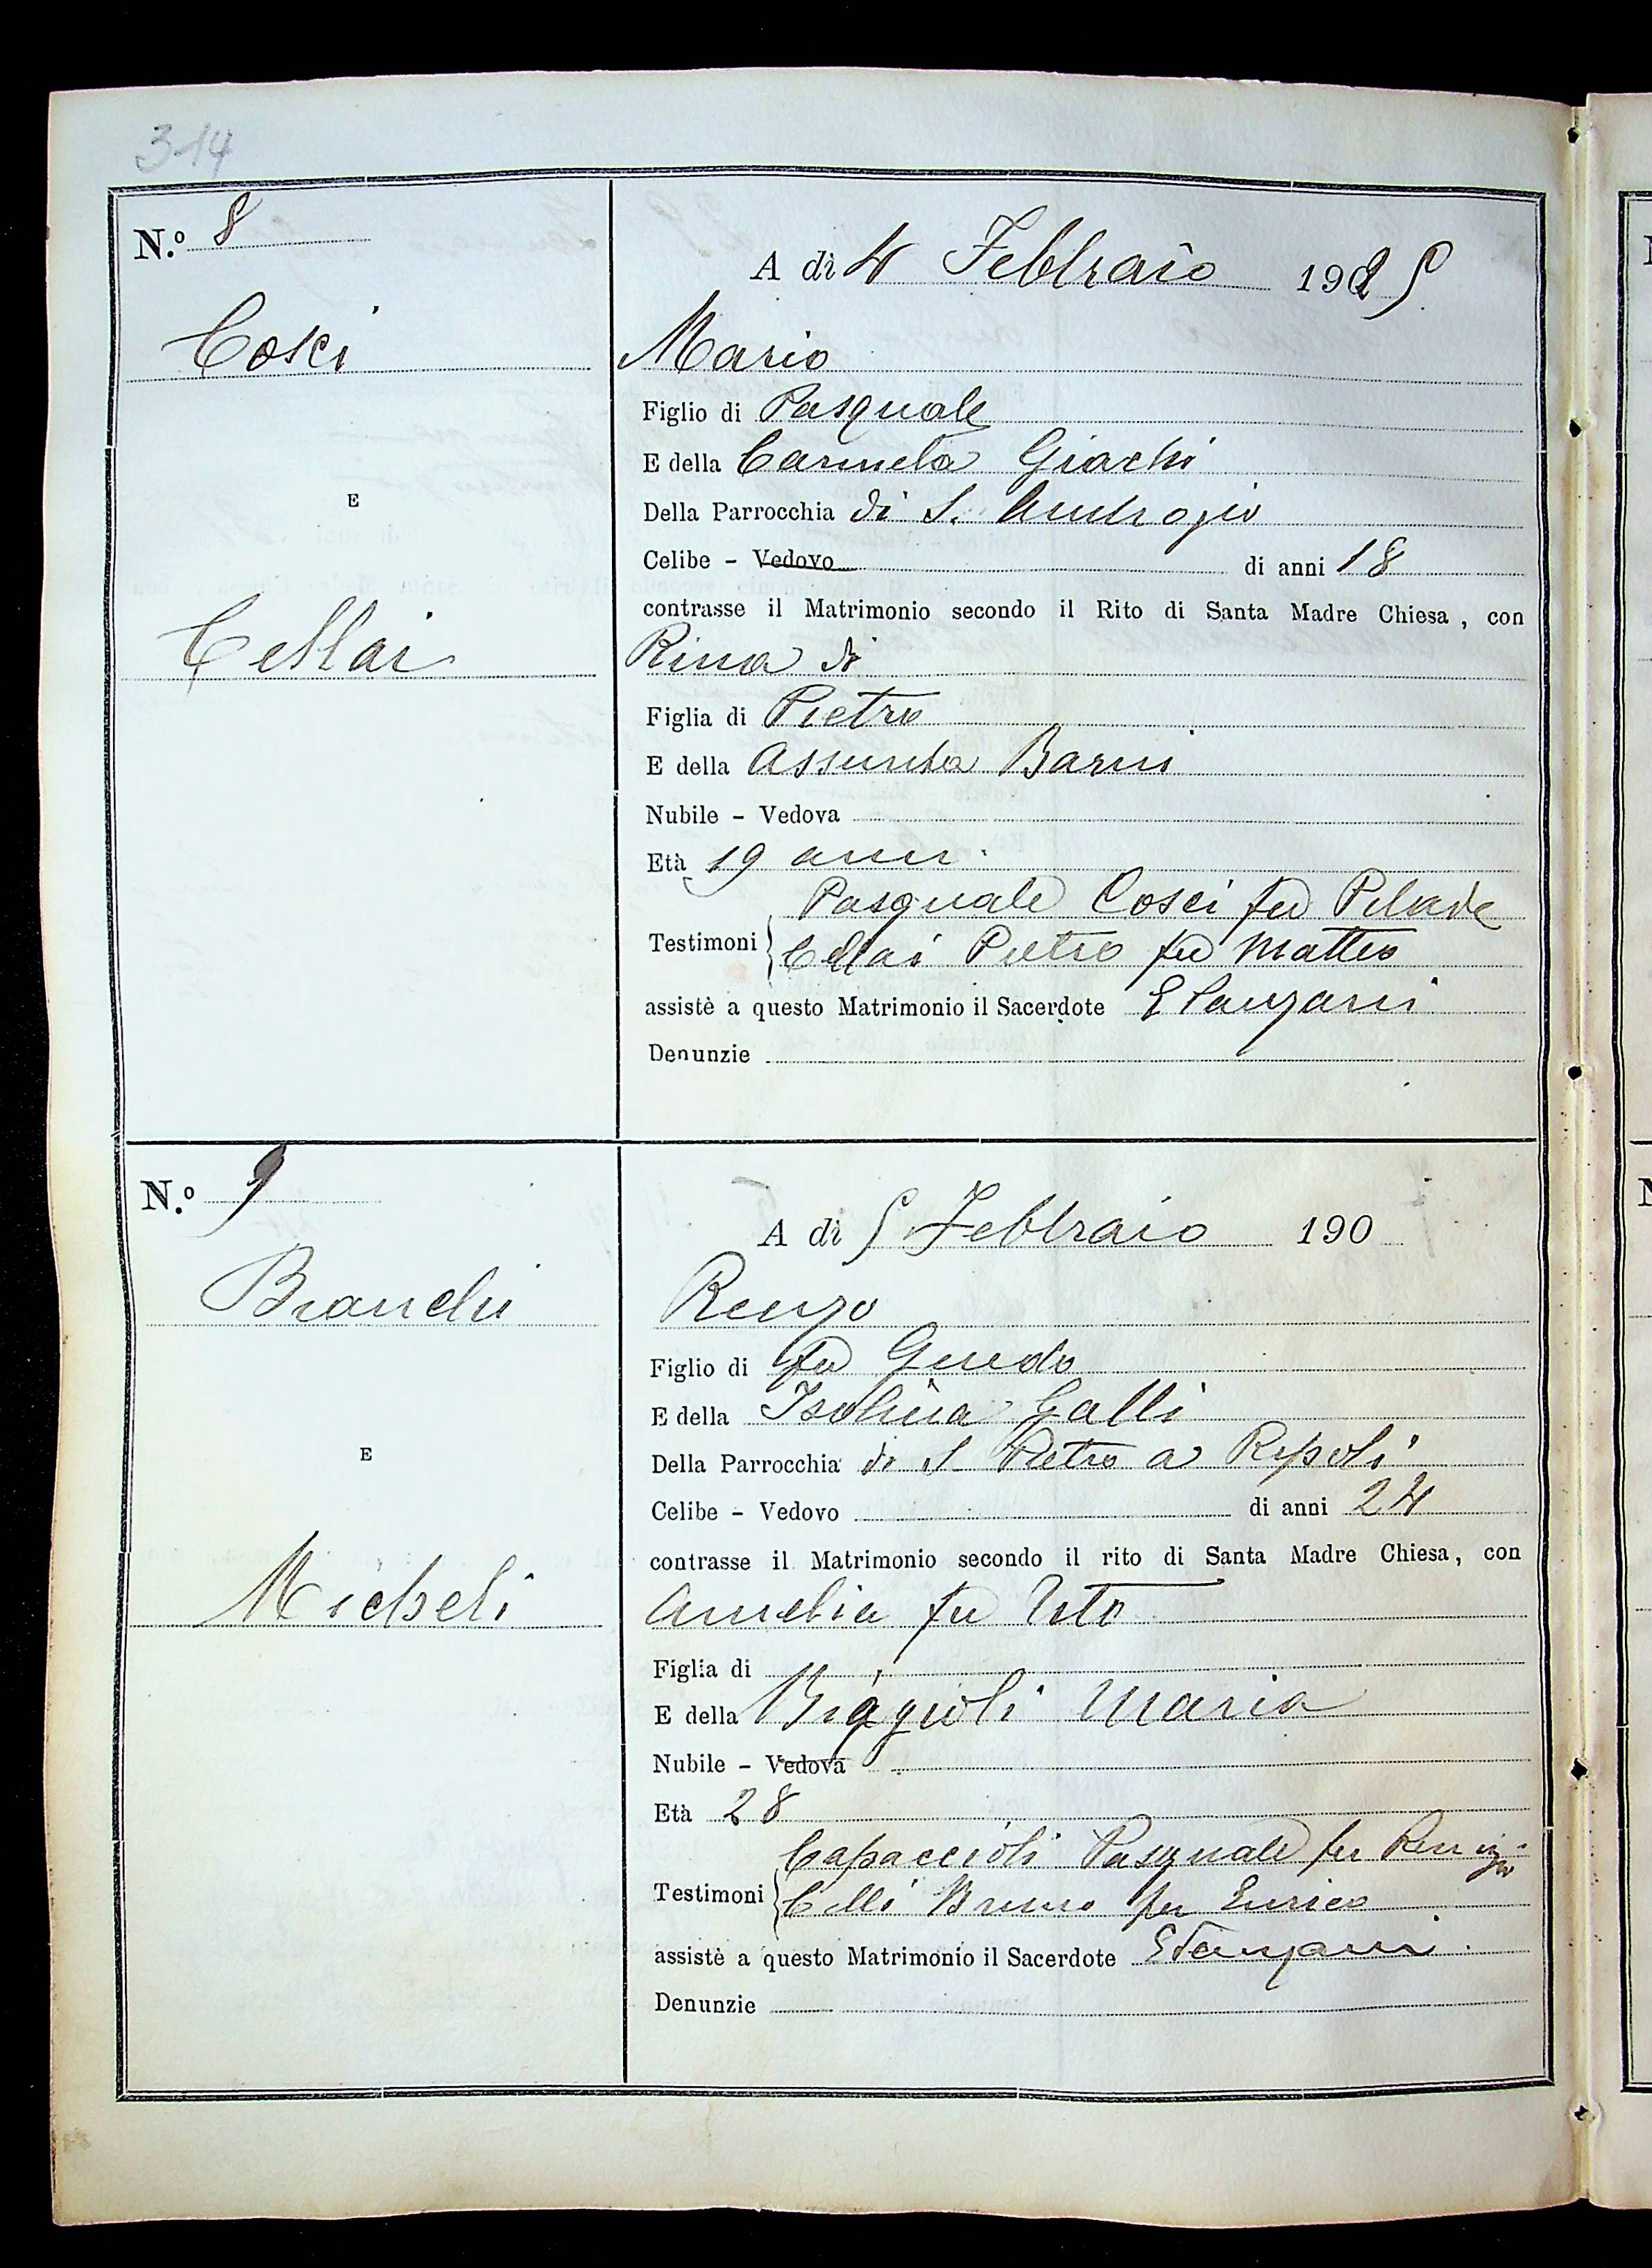 314
N.º 8
A dì 4 Febbraio 1925
Cosci
Mario
Figlio di Pasquale
E della Carmela Giachi
E
Della Parrocchia di S. Ambrogio
Celibe - Vedovo di anni 18
contrasse il Matrimonio secondo il Rito di Santa Madre Chiesa, con
Cellai
Rina di
Figlia di Pietro
E della Assunta Barni
Nubile - Vedova
Età 19 anni
Pasquale Cosci fu Pilade
Testimoni Cellai Pietro fu Matteo
assistè a questo Matrimonio il Sacerdote E Tanzani
Denunzie
N.º 9
A dì 5 Febbraio 190
Bianchi
Renzo
Figlio di fu Guido
E della Isolina Galli
E
Della Parrocchia di S Pietro a Ripoli
Celibe - Vedovo di anni 24
contrasse il Matrimonio secondo il rito di Santa Madre Chiesa, con
Micheli
Amelia fu
Figlia di
E della Biagioli Maria
Nubile - Vedova
Età 28
Capaccioli Pasquale fu
Testimoni Celli Bruno fu Enrico
assistè a questo Matrimonio il Sacerdote E Tanzani.
Denunzie